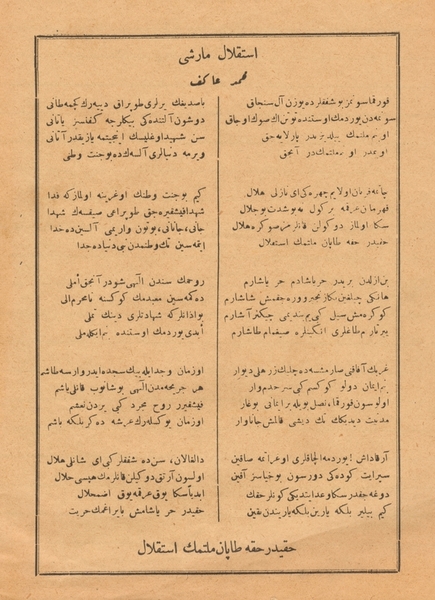 استقلال مارشی
محمد عاكف
قورقما سونمز بو شفقلرده یوزن آل سنجاق
سونمه‌دن یوردمك اوستنده توتن اك صوك اوجاق
او بنم ملتمك ییلدیزیدر پارلایه‌جق
او بنمدر او بنم ملتمكدر آنجق
چاتمه قربان اولایم چهره‌كی ای نازلی هلال
قهرمان عرقمه بر كول نه بو شدت بو جلال
سكا اولماز دوكولن قانلرمز صوكره حلال
حقیدر حقه طاپان ملتمك استقلال
بن ازلدن بریدر حر یاشادم حر یاشارم
هانكی چیلغین بكا زنجیر ووره‌جقمش شاشارم
كوكره‌مش سیل كبی‌یم بندیمی چیكنر آشارم
ییرتارم طاغلری انكینلره صیغمام طاشارم
غربك آفاقنی صارمشسه ده چلیك زرهلی دیوار
بنم ایمان دولو كوكسم كبی سرحدم وار
اولوسون قورقما ناصل بویله بر ایمانی بوغار
مدنیت دیدیكك تك دیشی قالمش جاناوار
آرقاداش! یوردمه آلچاقلری اوغراتمه صاقین
سپر ایت كوده‌كی دورسون بو حیاسزجه آقین
دوغه‌جقدر سكا وعد ایتدیكی كونلر حقك
كیم بیلیر بلكه یارین بلكه یاریندن یقین
باصدیغك یرلری طوپراق دییه‌رك كچمه طانی
دوشون آلتنده‌كی بیكلرجه كفنسز یاتانی
سن شهید اوغلیسك اینجیتمه یازیقدر آتانی
ویرمه دنیالری آلسه‌ك ده بو جنت وطنی
كیم بو جنت وطنك اوغرینه اولماز كه فدا
شهدا فیشقیره‌جق طوپراغی صیقسه‌ك شهدا
جانی، جانانی، بوتون واریمی آلسین ده خدا
ایتمه‌سین تك وطنمدن بنی دنیاده جدا
روحمك سندن الهی شودر آنجق املی
دكمه‌سین معبدمك كوكسنه نامحرم الی
بو اذانلر كه شهادتلری دینك تملی
ابدی یوردمك اوستنده بنم ایكله‌ملی
او زمان وجد ایله بیك سجده ایدر وارسه طاشم
هر جریحه‌مدن الهی بوشانوب قانلی یاشم
فیشقیریر روح مجرد كبی یردن نعشم
او زمان یوكسله‌رك عرشه ده‌كر بلكه باشم
دالغالان، سن ده شفقلر كبی ای شانلی هلال
اولسون آرتق دوكیلن قانلرمك هپسی حلال
ابدیا سكا یوق عرقمه یوق اضمحلال
حقیدر حر یاشامش بایراغمك حریت
حقیدر حقه طاپان ملتمك استقلال